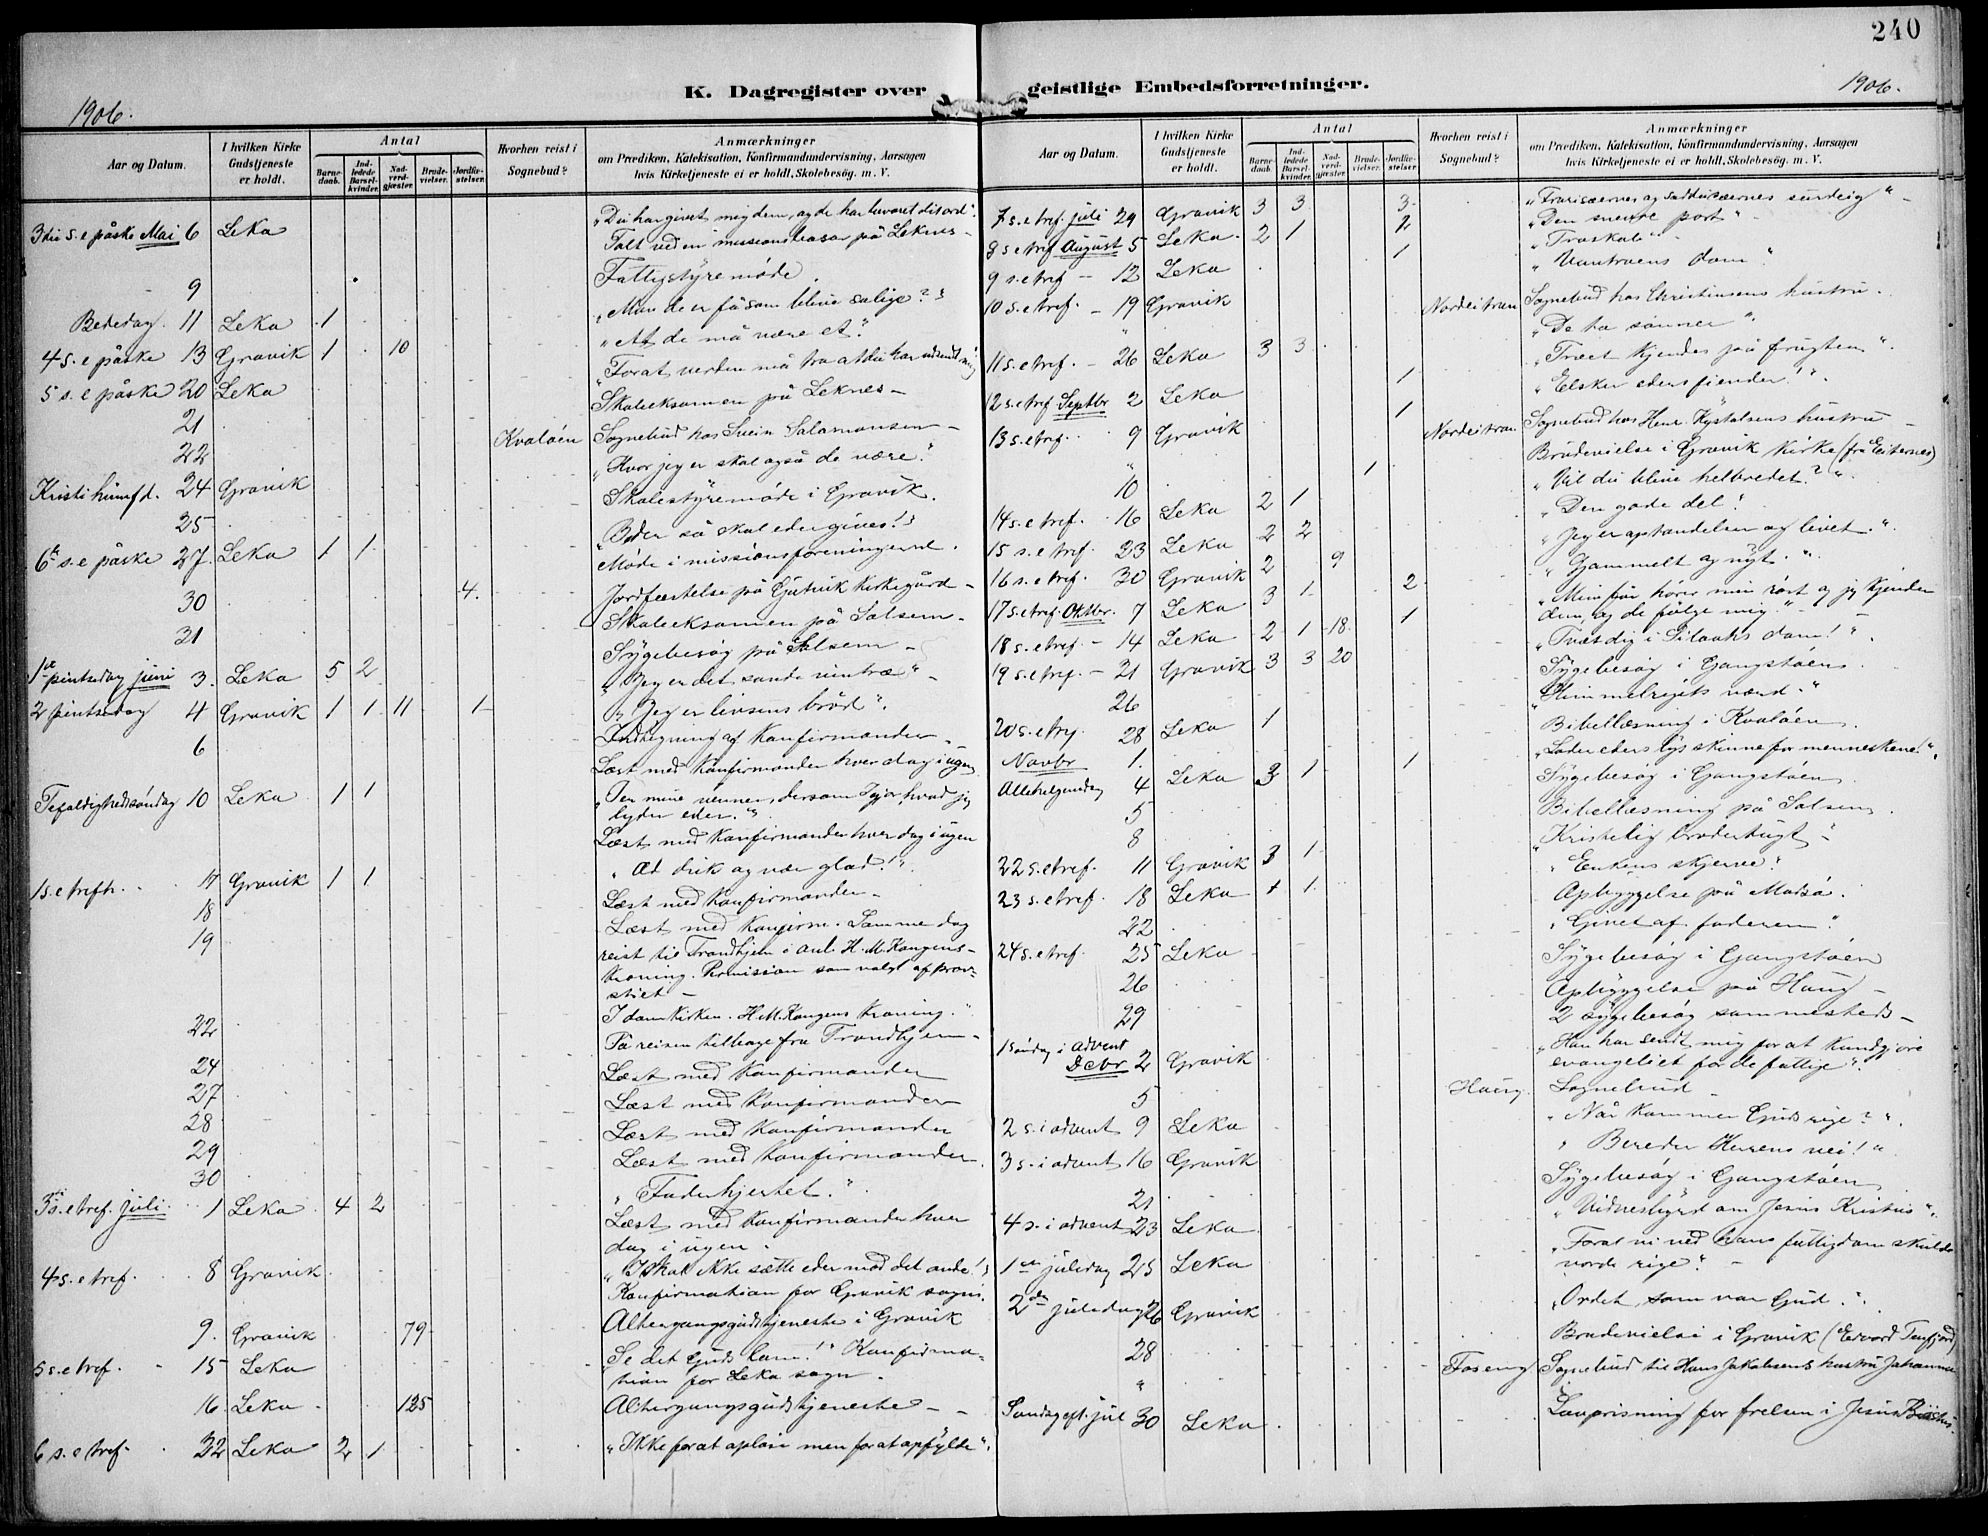 240
K. Dagregister over geistlige Embedsforretninger.
1906.
1906.
Aar og Datum.
I hvilken Kirke Gudstjeneste er holdt.
Antal
Barnedaab.
Indledede Barselkvinder.
Nadverdgjæster.
Brudevielser.
Jordfæstelser.
Hvorhen reist i Sognebud?
Anmærkninger
om Prædiken, Katekisation, Konfirmandundervisning, Aarsagen
hvis Kirketjeneste ei er holdt, Skolebesög m. V.
3die s. e påske Mai 6 Leka „Du har givet mig dem, og de har bevaret dit ord“.
Talt ved en missionsbasar på Leknes –
9 Fattigstyremøde.
Bededag. 11 Leka 1 „Mon de er få som bline salige?“
4 s. e påske 13 Gravik 1 10 „At de må være et.“
5 s. e påske 20 Leka „Forat verden må tro at du har udsendt mig“
21 Skoleeksamen på Leknes –
22 Kvaløen Sognebud hos Svein Salamonsen –
Kristi himfd. 24 Gravik „Hvor jeg er skal også de være.“
25 Skolestyremøde i Gravik.
6te s. e påske 27 Leka 1 1 „Beder så skal eder gives!“
30 4. Møde i missionsforeningerne.
Jordfæstelse på Gutvik Kirkegård –
31 Skoleeksamen på Solsem –
Sygebesøg på Solsem –
1ste pintsedag juni 3. Leka 5 2 „Jeg er det sande vintræ“ –
2 pintsedag 4 Gravik 1 1 11 1 „Jeg er livsens brød“.
6 Indtegning af Konfirmander –
Læst med Konfirmander hver dag i ugen
Trefoldighedssøndag 10 Leka 1 1 „I er mine venner, dersom I gjør, hvad jeg
byder eder.“
Læst med Konfirmander hver dag i ugen
1 s. e trefh. 17 Gravik 1 1 „Æd drik og vær glad!“
18 Læst med Konfirmander –
19 Læst med Konfirm. Samme dag
reist til Trondhjem i anl. H. M. Kongens
Kroning. Permission som valgt af prov-
stiet –
22 I domkirken. H. M. Kongens Kroning.
24 På reisen tilbage fra Trondhjem –
27 Læst med Konfirmander
28 Læst med Konfirmander
29 Læst med Konfirmander
30 Læst med Konfirmander
3die s. e tref. juli 1 Leka 4 2 „Faderhjertet.“
Læst med Konfirmander hver
dag i ugen.
4 s. e tref. 8 Gravik „I skal ikke sætte eder mod det onde!“
Konfirmation for Gravik sogn.
9. Gravik 79 Altergangsgudstjeneste i Gravik
5 s. e tref. 15 Leka „Se det Guds lam!“ Konfirma-
tion for Leka sogn.
16. Leka 125 Altergangsgudstjeneste –
6 s. e tref. 22 Leka 2 1 „Ikke for at opløse men for at opfylde“.
Aar og Datum.
I hvilken Kirke Gudstjeneste er holdt.
Antal
Barnedaab.
Indledede Barselkvinder.
Nadverdgjæster.
Brudevielser.
Jordfæstelser.
Hvorhen reist i Sognebud?
Anmærkninger
om Prædiken, Katekisation, Konfirmandundervisning, Aarsagen
hvis Kirketjeneste ei er holdt, Skolebesög m. V.
7 s. e tref. juli 29 Gravik 3 3 3 „Farisæernes og Saddukæernes surdeig“ –
8 s e tref August 5 Leka 2 1 2 „Den snevre port“ –
9 s. e tref – 12 Leka 1 „Troskab“
10 s. e tref. – 19 Gravik „Vantroens dom“
Nordeitran Sognebud hos Christensens hustru.
11 s. e tref. – 26 Leka 3 3 „De to sønner“.
12 s. e tref Septbr 2 Leka 1 „Træet kjendes på frugten“.
13 s. e tref. 9 Gravik 1 „Elsker eders fiender!“
„ Nordeitran Sognebud hos Henr. Kystolsens hustru –
10 1 Brudevielse i Gravik Kirke (fra Eiternes)
14 s. e tref. 16 Leka 2 1 „Vil du bline helbredet?“
15 s. e tref. 23 Leka 2 2 „Den gode del!
16 s. e tref. 30 Gravik 2 9 „Jeg er opstandelsen og livet.“
17 s. e tref. Oktbr. 7 Leka 3 1 2 „Gammelt og nyt.“
18 s. e tref. – 14 Leka 2 1 18 1 „Mine får hører min røst og jeg kjender
dem, og de følge mig.“
19 s. e tref. – 21 Gravik 3 3 20 „Tvæt dig i Siloahs dam!“
26 Sygebesøg i Gangstøen
20 s. e trf. 28 Leka 1 „Himmelrigets værd.“
Novbr 1. Bibellæsning i Kvaløen.
Allehelgensdag 4 Leka 3 1 1 „Lader eders lys skinne for menneskene!“
5 Sygebesøg i Gangstøen
8 Bibellæsning på Solsem.
22 s. e tref. 11 Gravik 3 1 „Kristelig brodertugt“
23 s. e tref. 18 Leka 1 1 „Enkens skjerv.“
22 Opbyggelse på Madsø.
24 s. e tref. 25 Leka „Givet af faderen“.
26 Sygebesøg i Gangstøen
29 Opbyggelse på Haug –
2 sygebesøg sammesteds –
1 søndag i advent Decbr 2 Gravik „Han har sendt mig for at kundgjøre
evangeliet for de fattige“.
5 Haug. Sognebud
2 s. i advent 9 Leka „Når kommer Guds rige?“
3 s. i advent 16 Gravik „Bereder Herrens vei!“
21 Sygebesøg i Gangstøen
4 s. i advent 23 Leka „Vidnesbyrd om Jesus Kristus“.
1ste juledag 25 Leka „Forat vi ved hans fattigdom skulde
vorde rige.“ –
2den juledag 26 Gravik „Ordet, som var Gud.“
28 Brudevielse i Gravik (Edvard Terrfjord)
„ Foseng Sognebud til Hans Jakobsens hustru Johanna
Søndag eft. jul 30 Leka Lovprisning for frelsen i Jesus Kristus.